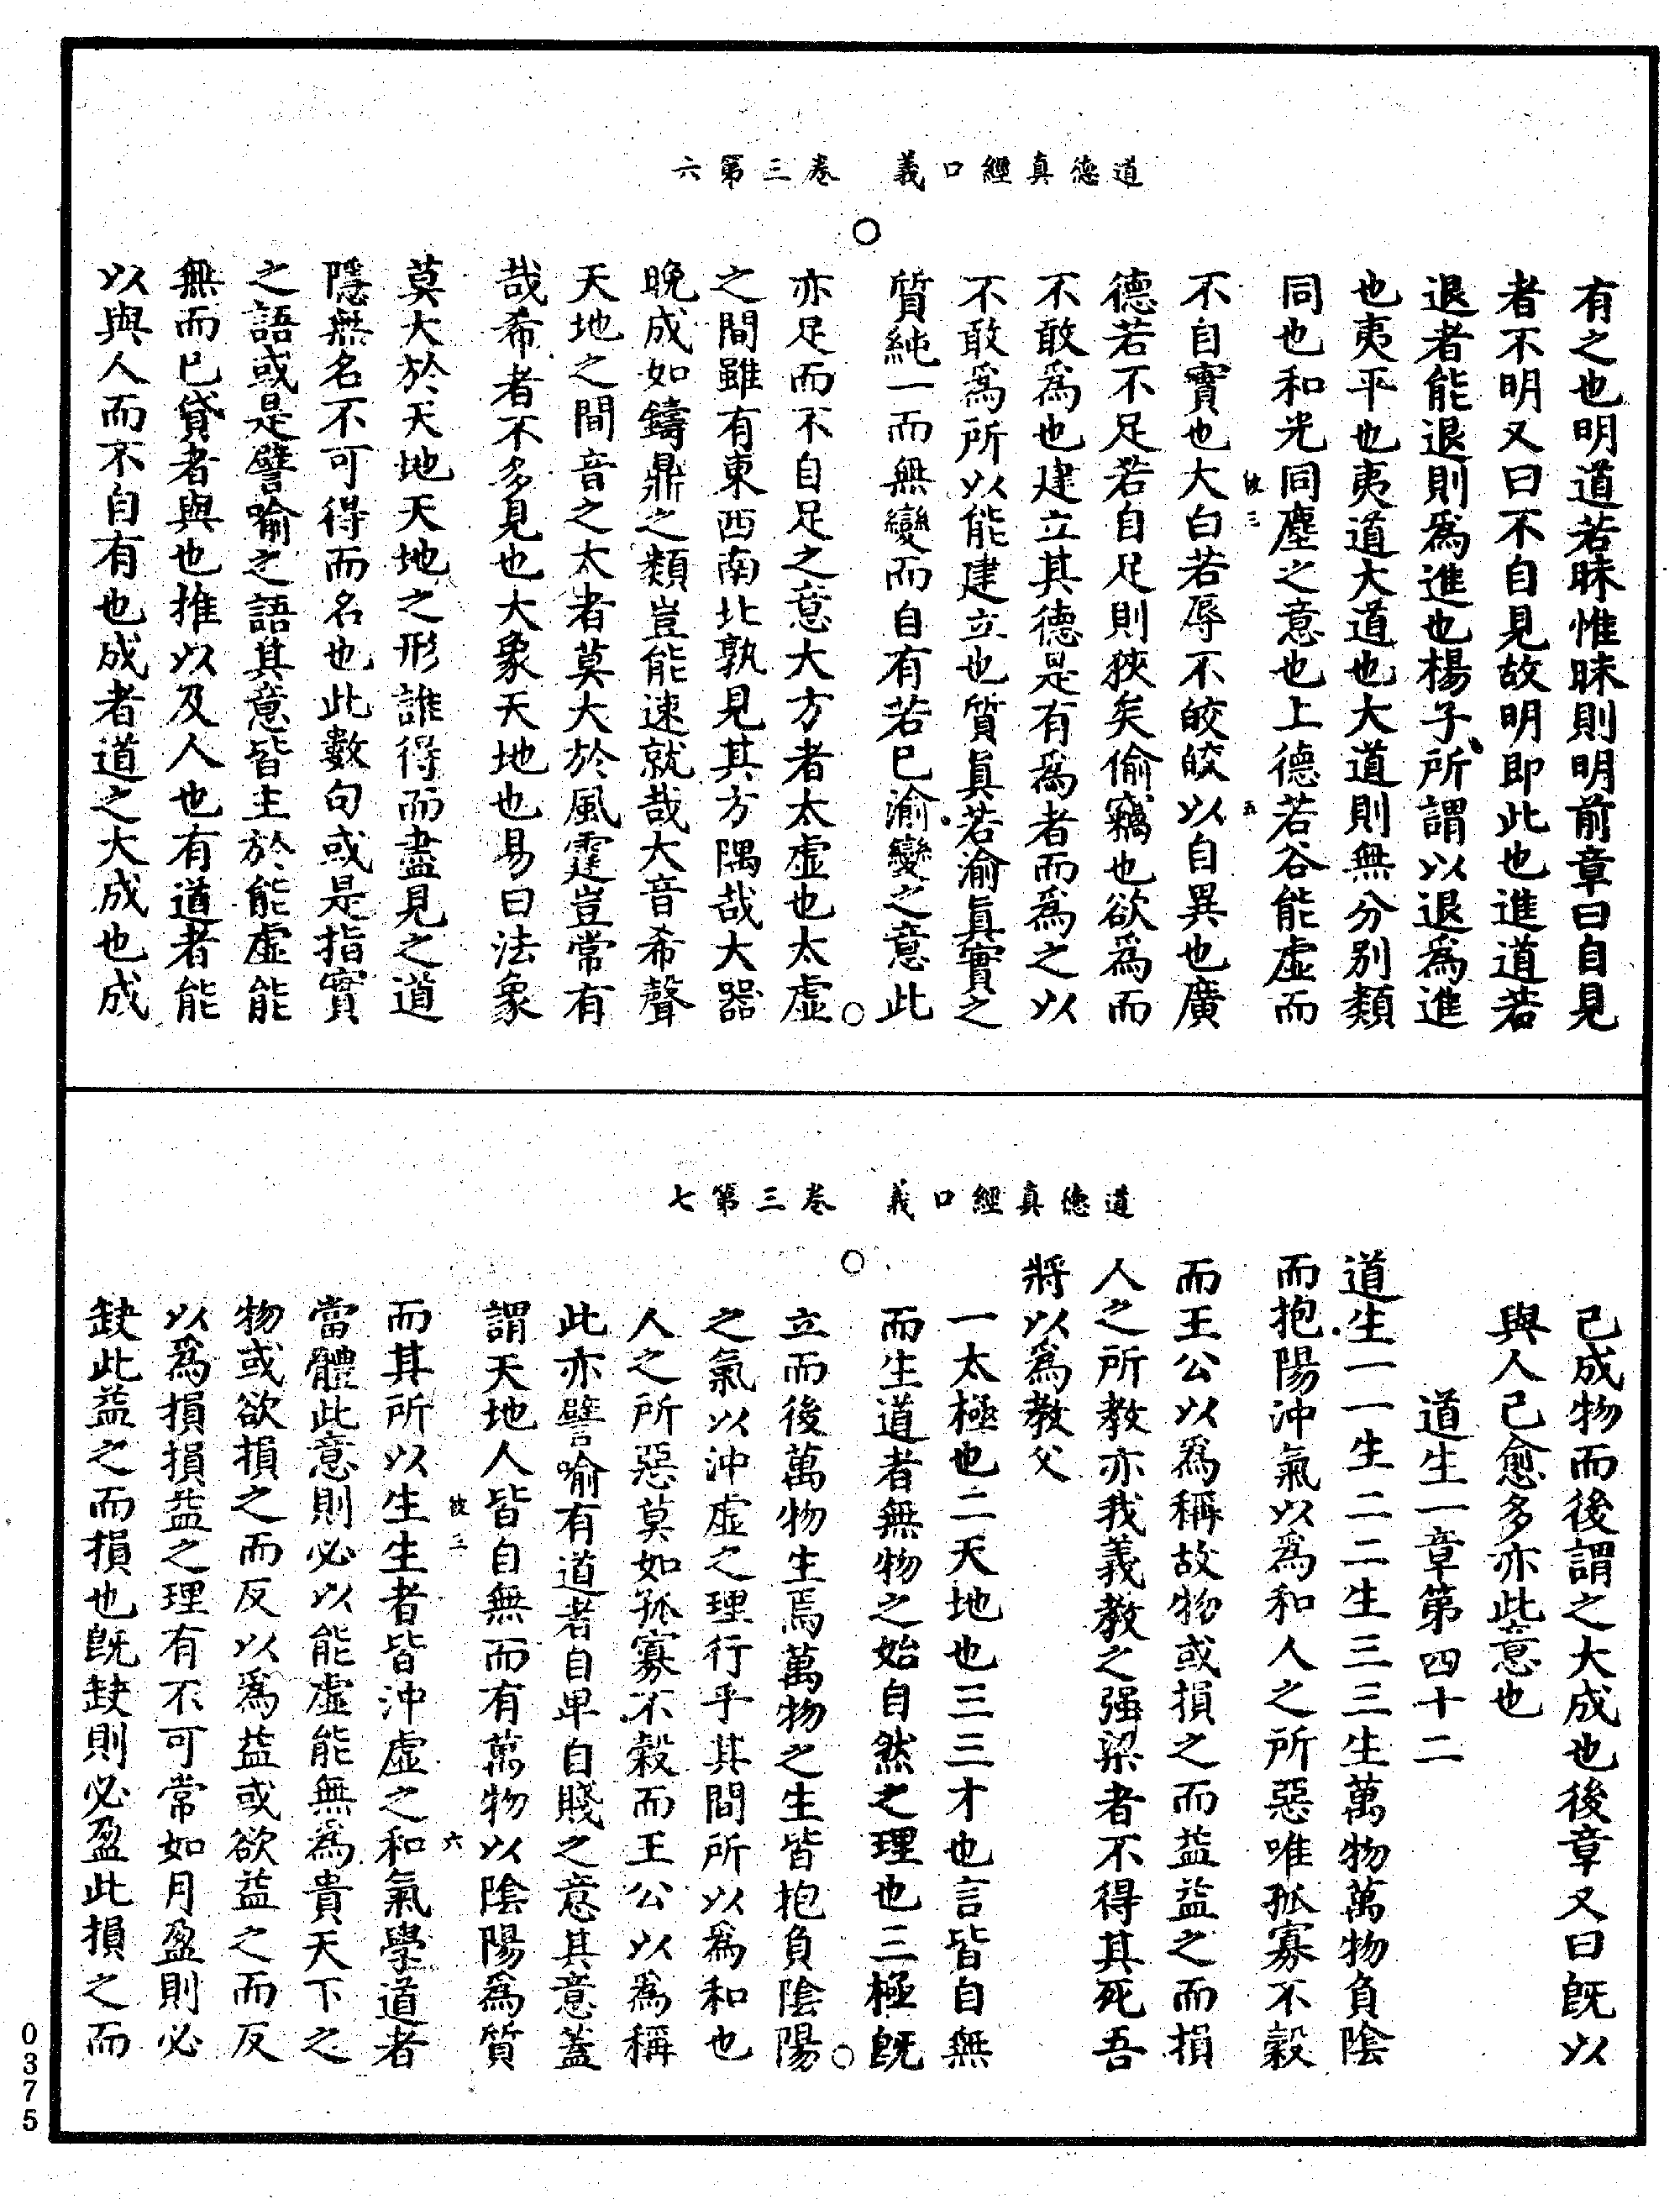 道德真經口義　卷三第六
有之也明道若昧惟昧則明前章曰自見
者不明又曰不自見故明即此也進道若
退者能退則爲進也楊子所謂以退爲進
也夷平也夷道大道也大道則無分別類
同也和光同塵之意也上德若谷能虛而
不自實也大白若辱不皎皎以自異也廣
德若不足若自足則狹矣偷竊也欲爲而
不敢爲也建立其德是有爲者而爲之以
不敢爲所以能建立也質眞若渝眞實之
質純一而無變而自有若已渝變之意此
亦足而不自足之意大方者太虛也太虛
之間雖有東西南北孰見其方隅哉大器
晚成如鑄鼎之類豈能速就哉大音希聲
天地之間音之大者莫大於風霆豈常有
哉希者不多見也大象天地也易曰法象
莫大於天地天地之形誰得而盡見之道
隱無名不可得而名也此數句或是指實
之語或是譬喻之語其意皆主於能虛能
無而已貸者與也推以及人也有道者能
以與人而不自有也成者道之大成也成
道德真經口義　卷三第七
己成物而後謂之大成也後章又曰既以
與人己愈多亦此意也
道生一章第四十二
道生一一生二二生三三生萬物萬物負陰
而抱陽沖氣以爲和人之所惡唯孤寡不穀
而王公以爲稱故物或損之而益益之而損
人之所教亦我義教之强梁者不得其死吾
將以爲教父
一太極也二天地也三三才也言皆自無
而生道者無物之始自然之理也三極既
立而後萬物生焉萬物之生皆抱負陰陽
之氣以沖虛之理行乎其間所以爲和也
人之所惡莫如孤寡不穀而王公以爲稱
此亦譬喻有道者自卑自賤之意其意蓋
謂天地人皆自無而有萬物以陰陽爲質
而其所以生生者皆沖虛之和氣學道者
當體此意則必以能虛能無爲貴天下之
物或欲損之而反以爲益或欲益之而反
以爲損損益之理有不可常如月盈則必
缺此益之而損也既缺則必盈此損之而
0375